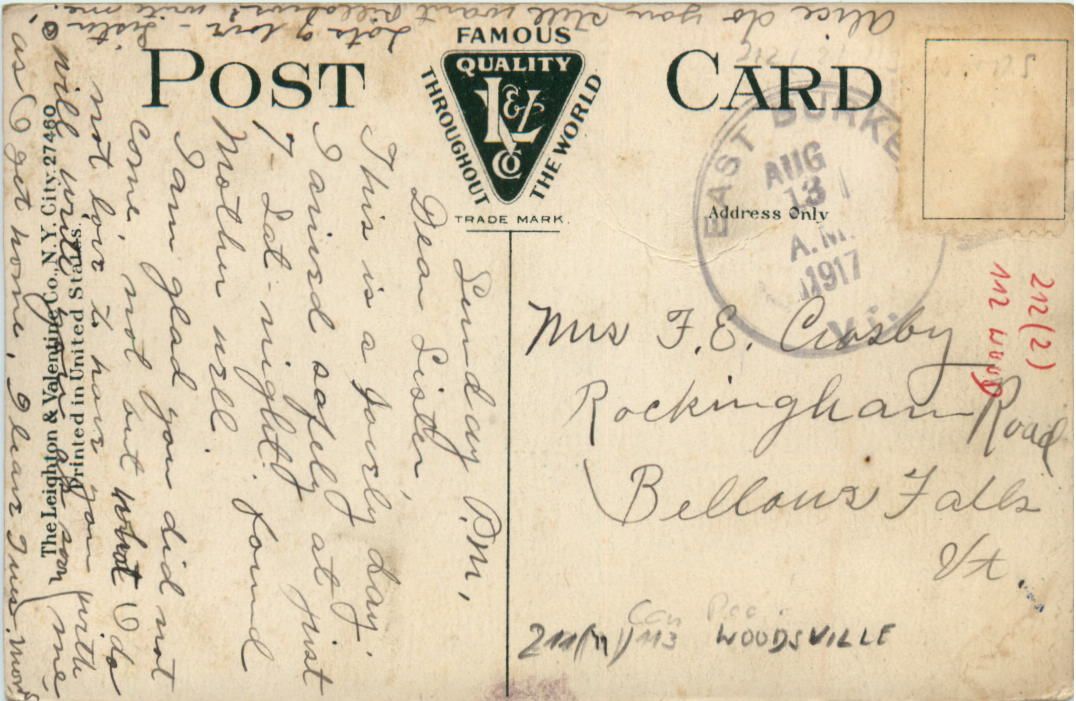 POST CARD
FAMOUS
QUALITY
L & V
CO
THROUGHOUT
THE WORLD
TRADE MARK.
Address Only
EAST BURKE
AUG
13
A.M.
1917
VT.
The Leighton & Valentine Co., N.Y. City. 27460
Printed in United States.
Sunday P.M.,
Dear Sister,
This is a lovely day.
I arived safely at just
7 - Sat. night. found
Mother well
I am glad you did not
come, not but what I do
not love to have you with
will write you again me
as I get home,
Lots of love - Sister
Alice do you still want pillows? write me.
Mrs F. E. Crosby
Rockingham Road
Bellows Falls
Vt.
212(2)
112 WOOD
WOODSVILLE